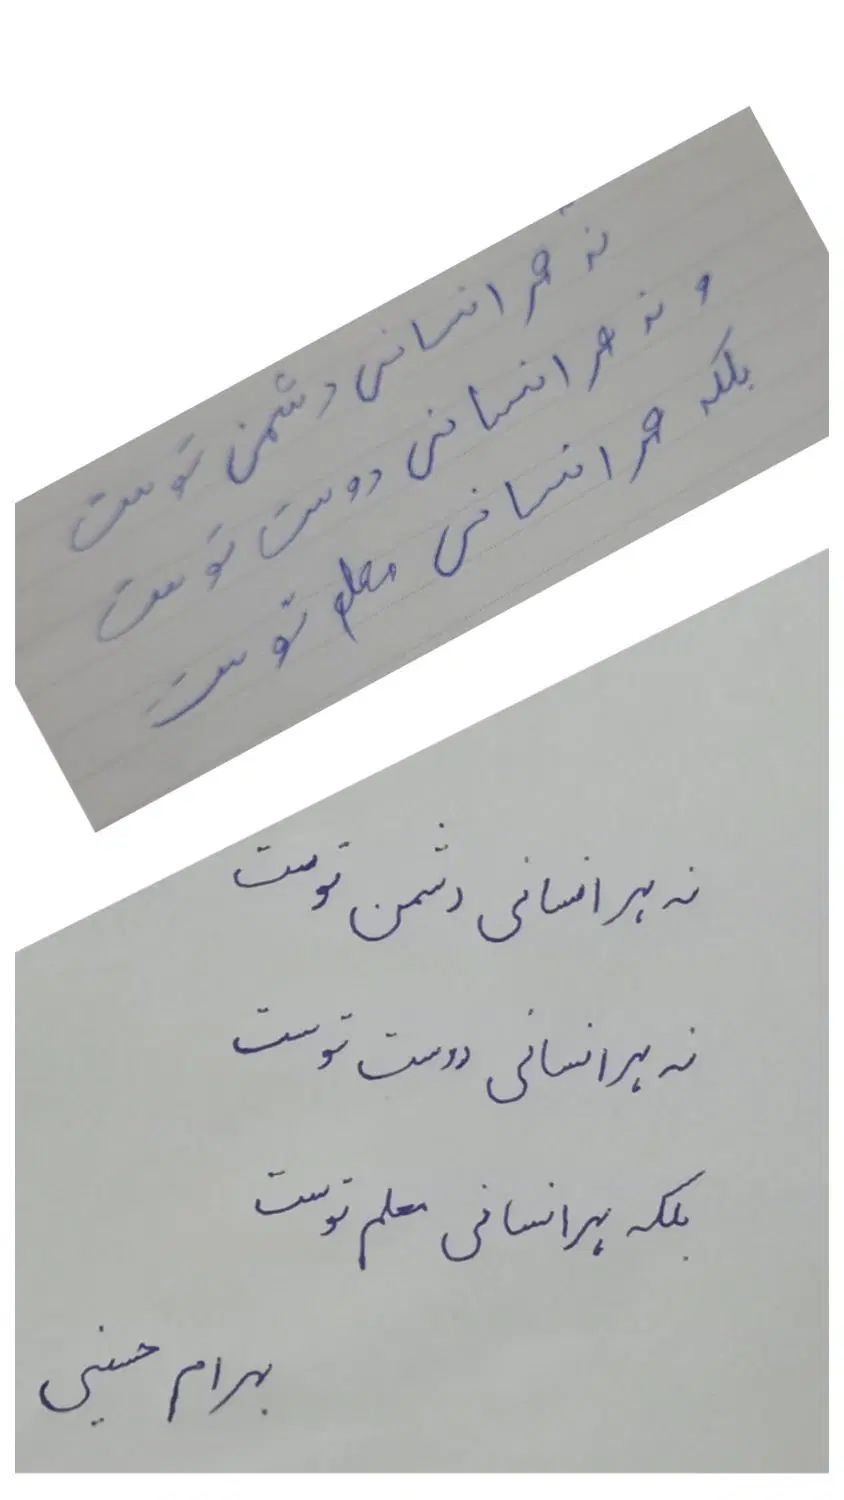 نه هر انسانی دشمن توست
و نه هر انسانی دوست توست
بلکه هر انسانی معلم توست
نه هر انسانی دشمن توست
نه هر انسانی دوست توست
بلکه هر انسانی معلم توست
بهرام حسینی